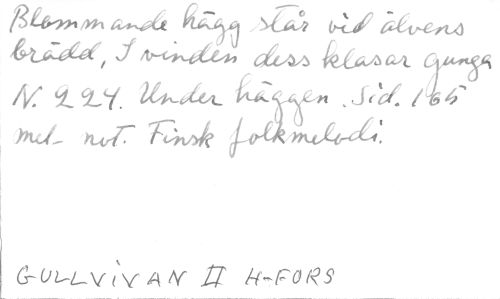 Blommande hägg står vid älvens
brädd, I vinden dess klasar gunga
N. 224. Under häggen. Sid. 165
mel- not. Finsk folkmelodi.
GULLVIVAN II H-FORS